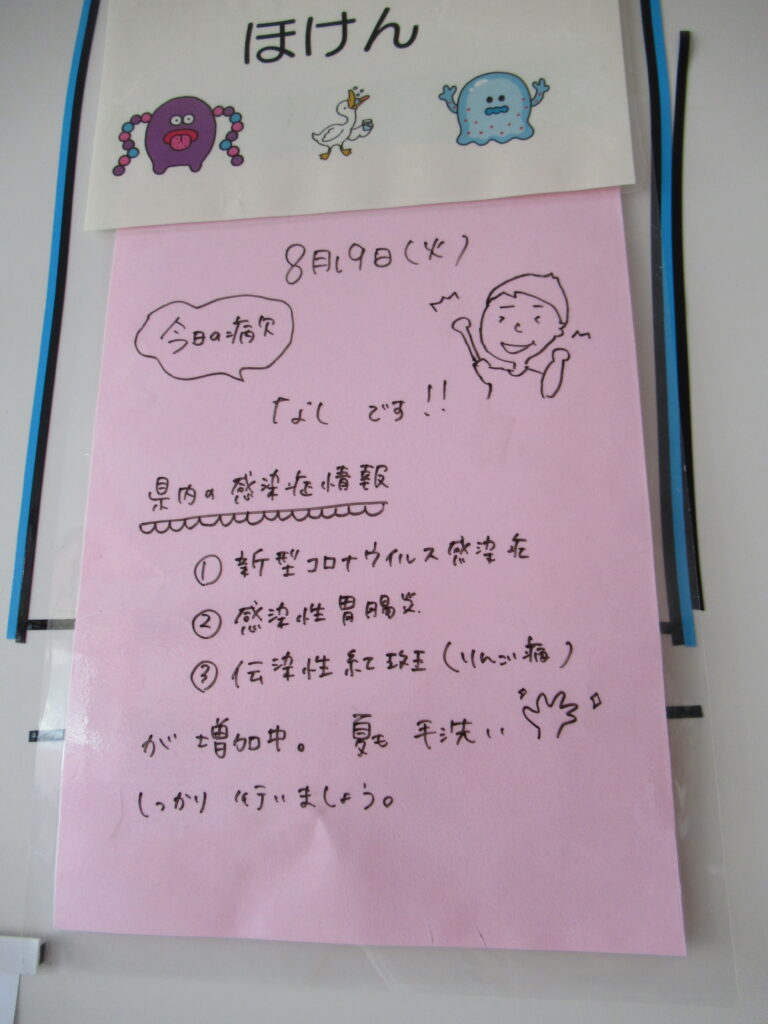 ほけん
8月19日(火)
今日の病欠
なし です!!
県内の感染症情報
① 新型コロナウイルス感染症
② 感染性胃腸炎
③ 伝染性紅斑(りんご病)
が増加中。 夏も 手洗い
しっかり 行いましょう。